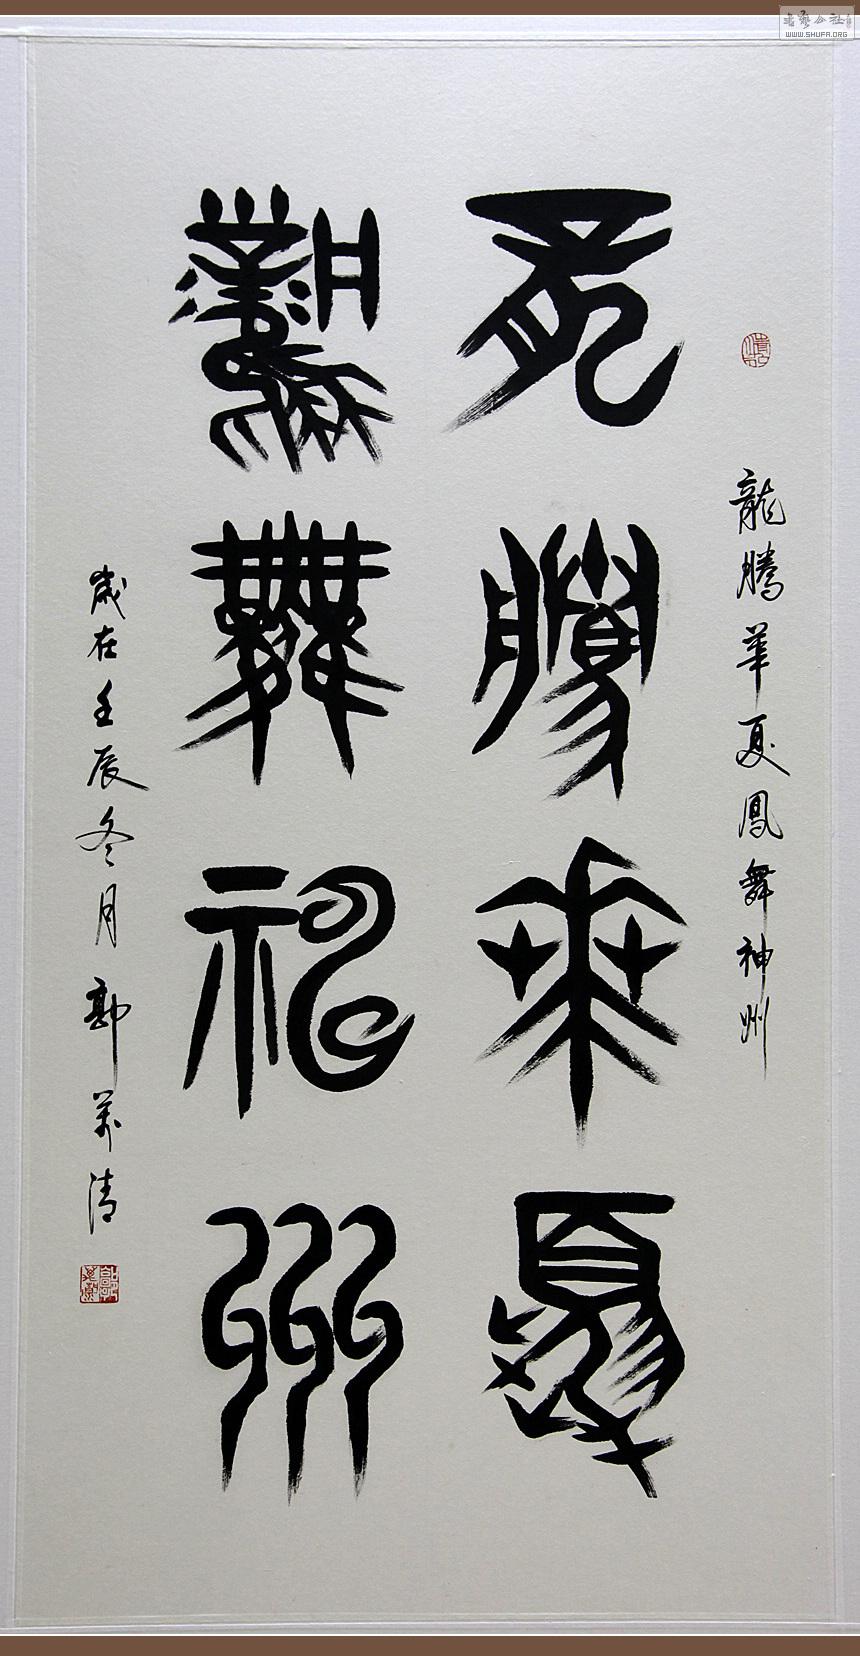 龍騰華夏
鳳舞神州
龍騰華夏鳳舞神州
歲在壬辰冬月郭萬清
WWW.SHUFA.ORG